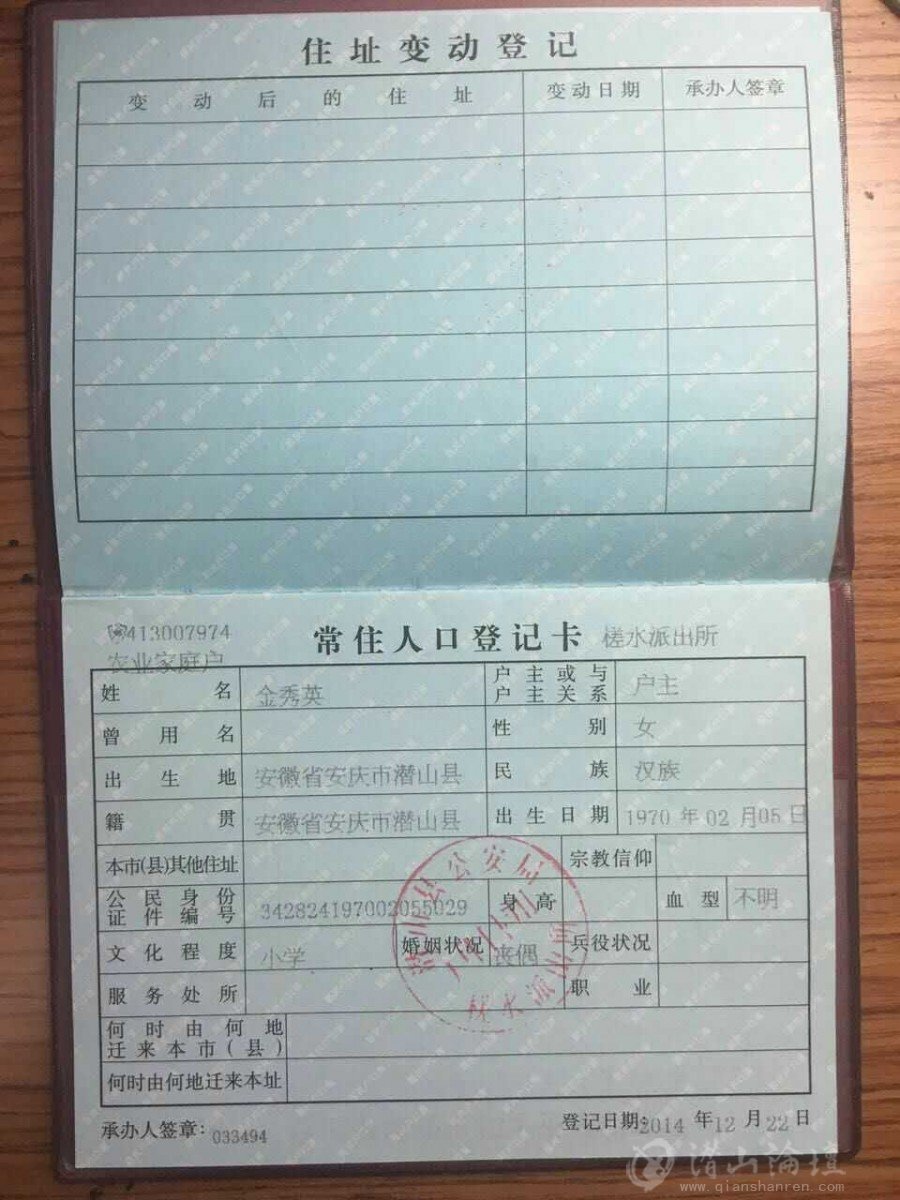 住址变动登记
变动后的住址 变动日期 承办人签章
413007974
农业家庭户
常住人口登记卡 槎水派出所
姓名 金秀英 户主或与户主关系 户主
曾用名 性别 女
出生地 安徽省安庆市潜山县 民族 汉族
籍贯 安徽省安庆市潜山县 出生日期 1970年02月05日
本市(县)其他住址 宗教信仰
公民身份证件编号 342824197002055029 身高 血型 不明
文化程度 小学 婚姻状况 丧偶 兵役状况
服务处所 职业
何时由何地迁来本市(县)
何时由何地迁来本址
承办人签章: 033494 登记日期: 2014年12月22日
潜山论坛
www.qianshanren.com